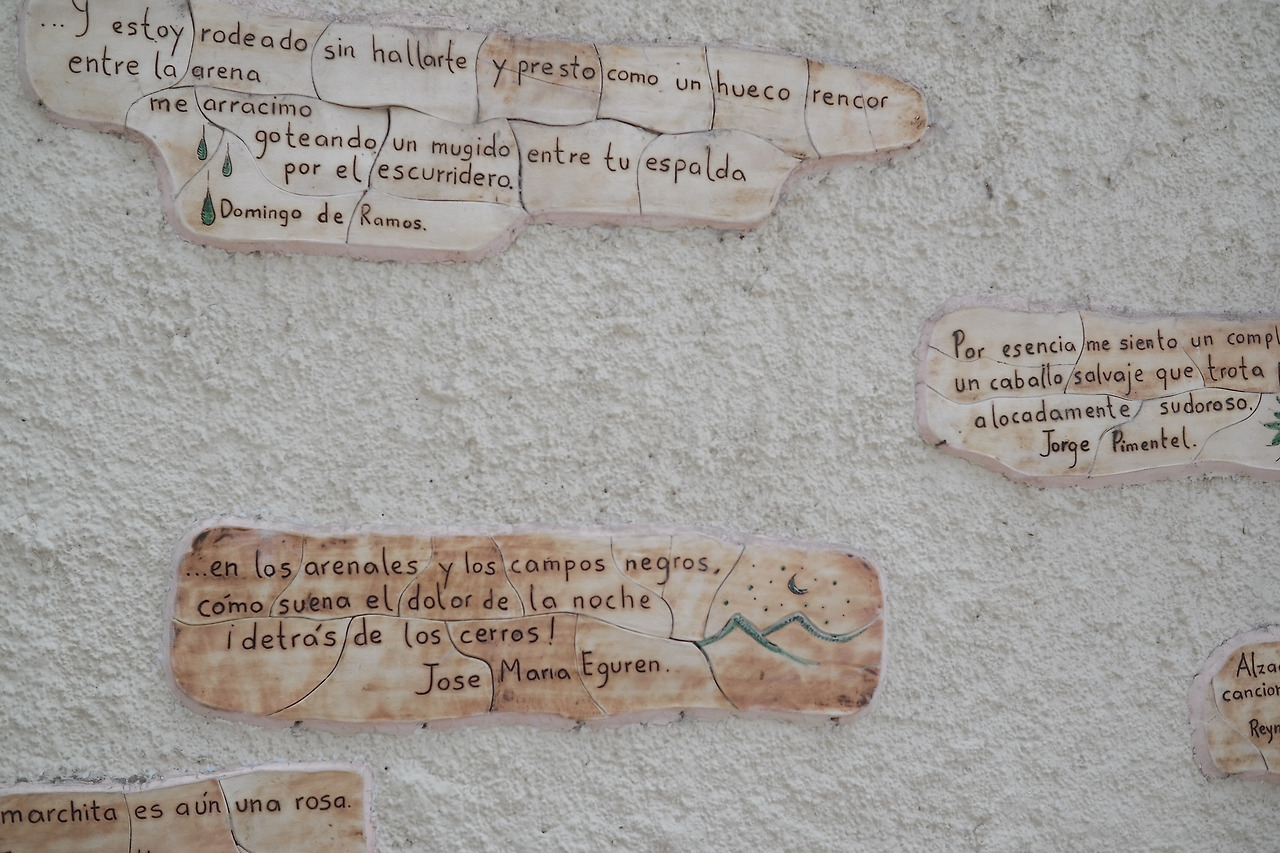 ...Y estoy rodeado sin hallarte y presto como un hueco rencor
entre la arena
me arracimo
goteando un mugido entre tu espalda
por el escurridero.
Domingo de Ramos.
Por esencia me siento un compl
un caballo salvaje que trota
alocadamente sudoroso.
Jorge Pimentel.
...en los arenales y los campos negros,
cómo suena el dolor de la noche
¡detrás de los cerros!
Jose Maria Eguren.
Alza
cancion
Reyn
marchita es aún una rosa.